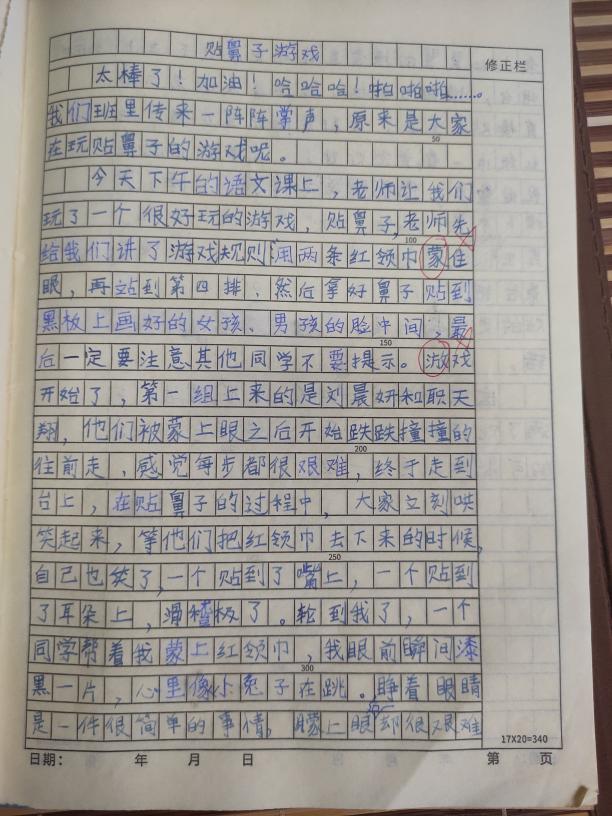 贴鼻子游戏
修正栏
太棒了！加油！哈哈哈！啪啪啪……。
我们班里传来一阵阵掌声，原来是大家
50
在玩贴鼻子的游戏呢。
今天下午的语文课上，老师让我们
玩了一个很好玩的游戏，贴鼻子，老师先
100
给我们讲了游戏规则“用两条红领巾蒙住
眼，再站到第四排，然后拿好鼻子贴到
黑板上画好的女孩、男孩的脸中间，最
150
后一定要注意其他同学不要提示。游戏
开始了，第一组上来的是刘晨妍和职天
翔，他们被蒙上眼之后开始跌跌撞撞的
200
往前走，感觉每步都很艰难，终于走到
台上，在贴鼻子的过程中，大家立刻哄
笑起来，等他们把红领巾去下来的时候，
250
自己也笑了，一个贴到了嘴上，一个贴到
了耳朵上，滑稽极了。轮到我了，一个
同学帮着我蒙上红领巾，我眼前瞬间漆
300
黑一片，心里像小兔子在跳。睁着眼睛
是一件很简单的事情，朦上眼却很艰难
17X20=340
日期： 年 月 日 第 页